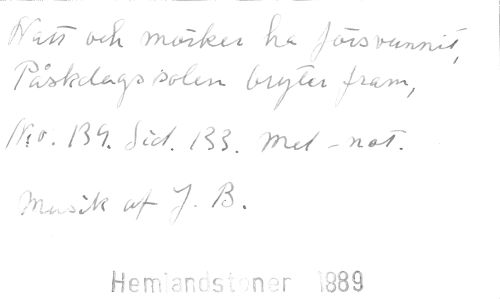 Natt och mörker ha försvunnit,
Påskdagssolen bryter fram,
No. 139. Sid. 133. Mel-not.
Musik af J. B.
Hemlandstoner 1889